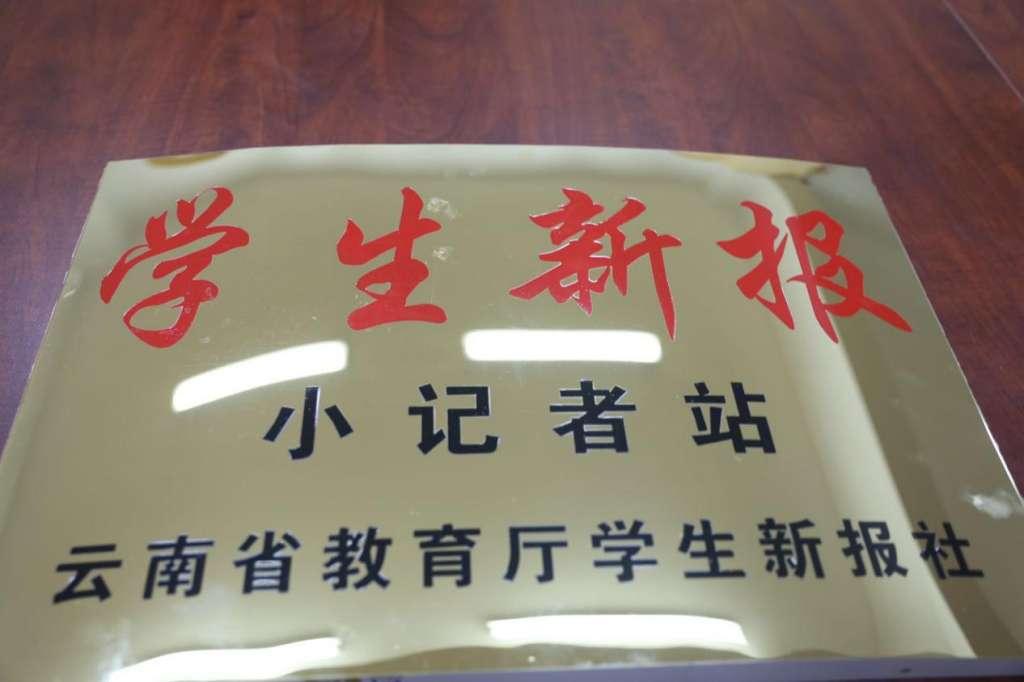 学生新报
小记者站
云南省教育厅学生新报社